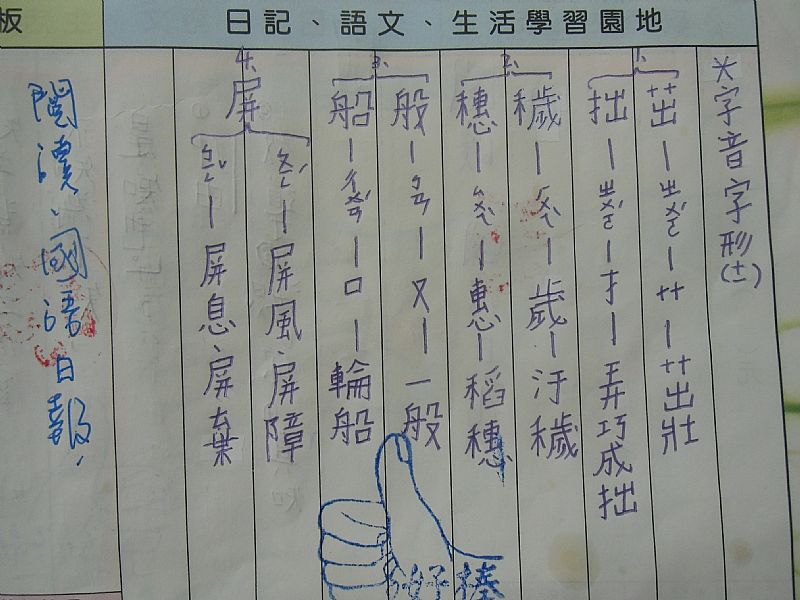 板
日記、語文、生活學習園地
*字音字形(十一)
1. 茁—ㄓㄨㄛˊ—艹—茁壯
拙—ㄓㄨㄛˊ—扌—弄巧成拙
2. 穢—ㄏㄨㄟˋ—歲—汙穢
穗—ㄙㄨㄟˋ—惠—稻穗
3. 般—ㄅㄢ—又—一般
船—ㄔㄨㄢˊ—口—輪船
4. 屏
ㄆㄧㄥˊ—屏風、屏障
ㄅㄧㄥˇ—屏息、屏棄
閱讀、國語日報、
好棒